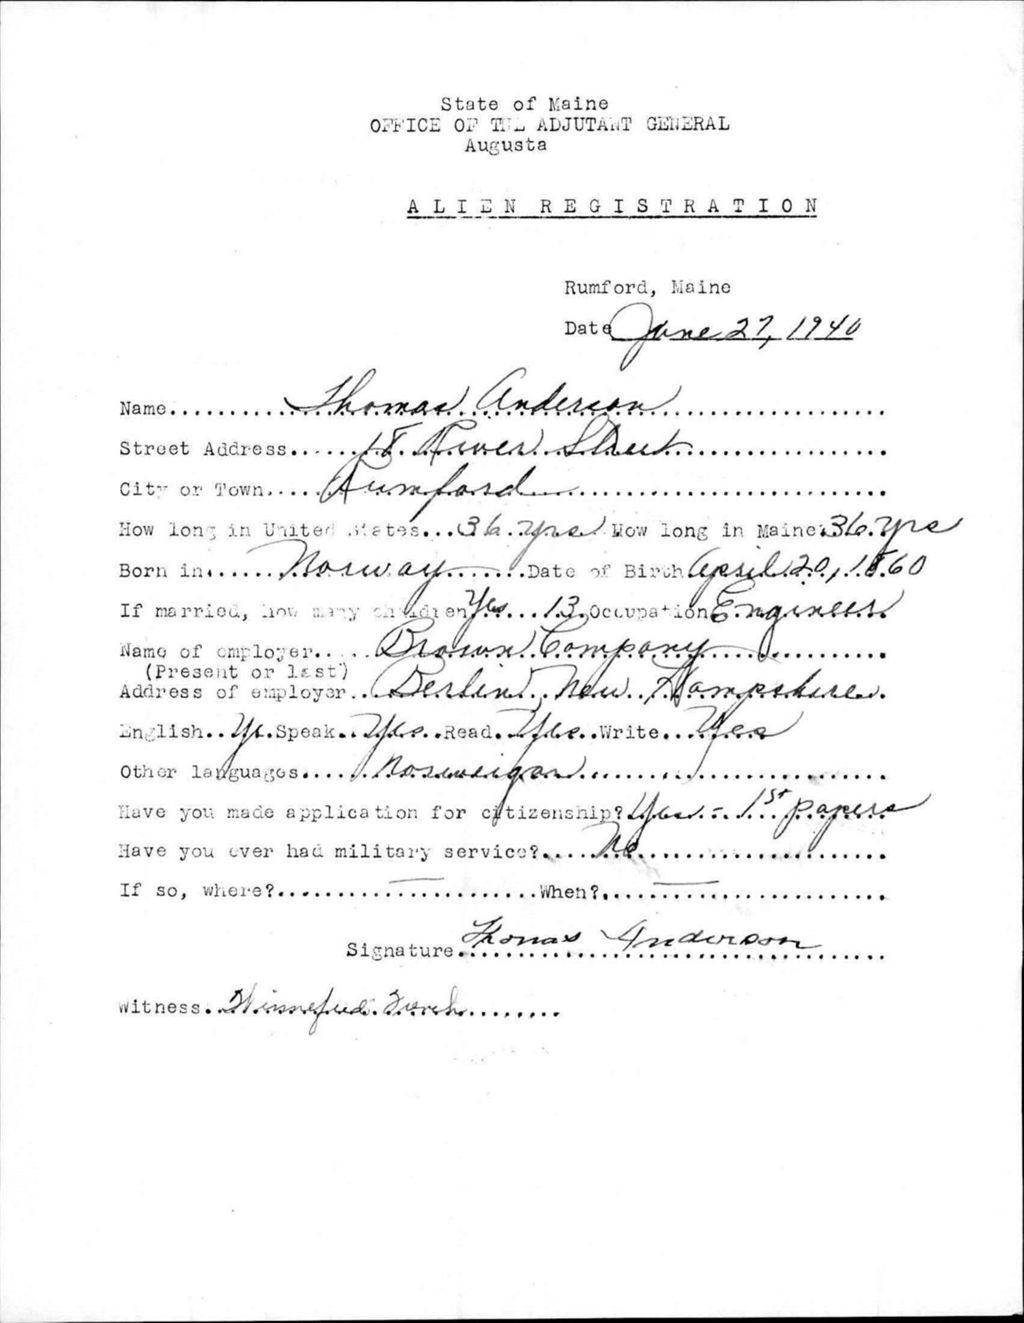 State of Maine
OFFICE OF THE ADJUTANT GENERAL
Augusta
ALIEN REGISTRATION
Rumford, Maine
Date June 27, 1940
Name..........Thomas Anderson..........
Street Address......18 River Street..........
City or Town.....Rumford..........
How long in United States...36 yrs How long in Maine 36 yrs
Born in......Norway.......Date of Birth April 20, 1860
If married, how many children Yes...13.Occupation Engineer
Name of employer.....Brown Company..........
(Present or last)
Address of employer..Berlin, New Hampshire.
English..Yes.Speak..Yes..Read.Yes..Write...Yes
Other languages....Norweigan..........
Have you made application for citizenship? Yes - 1st papers
Have you ever had military service?....No..........
If so, where?..........When?..........
Signature Thomas Anderson
Witness. Winnefred